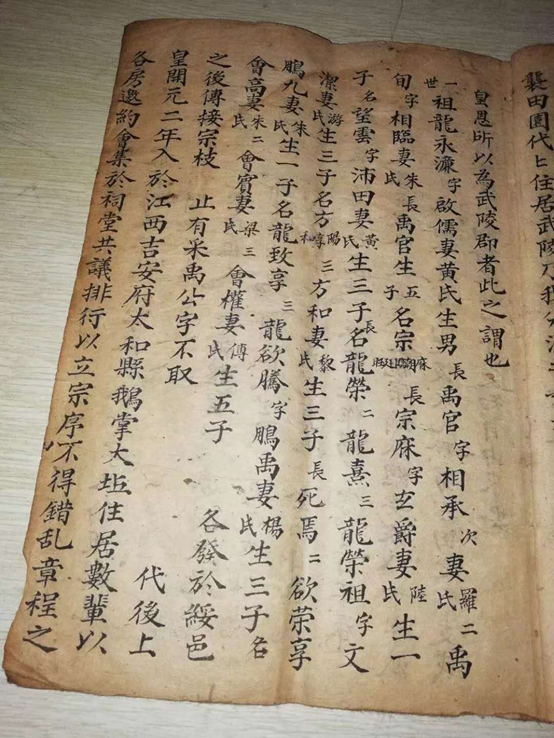 襲田園代々住居武陵乃我
皇恩所以為武陵郡者此之謂也
一世祖龍永濂字啟儒妻黃氏生男長禹官字相承次妻羅氏二禹
旬字相臨妻朱氏長禹官生五子名宗長宗庥字玄爵妻陸氏生一
子名望雲字沛田妻黃氏生三子名長龍榮二龍熹三龍榮祖字文
潔妻游氏生三子名方陽享和三方和妻黎氏生三子長死焉二欲荣享
鵬九妻朱氏生一子名龍致享三龍欲騰字鵬禹妻楊氏生三子名
會高妻朱氏二會賓妻梁氏三會權妻傅氏生五子各發於綏邑
之後傳接宗枝止有采禹公字不取代後上
皇開元二年入於江西吉安府太和縣鵝掌大坵住居數輩以
各房邀約會集於祠堂共議排行以立宗序不得錯乱章程之